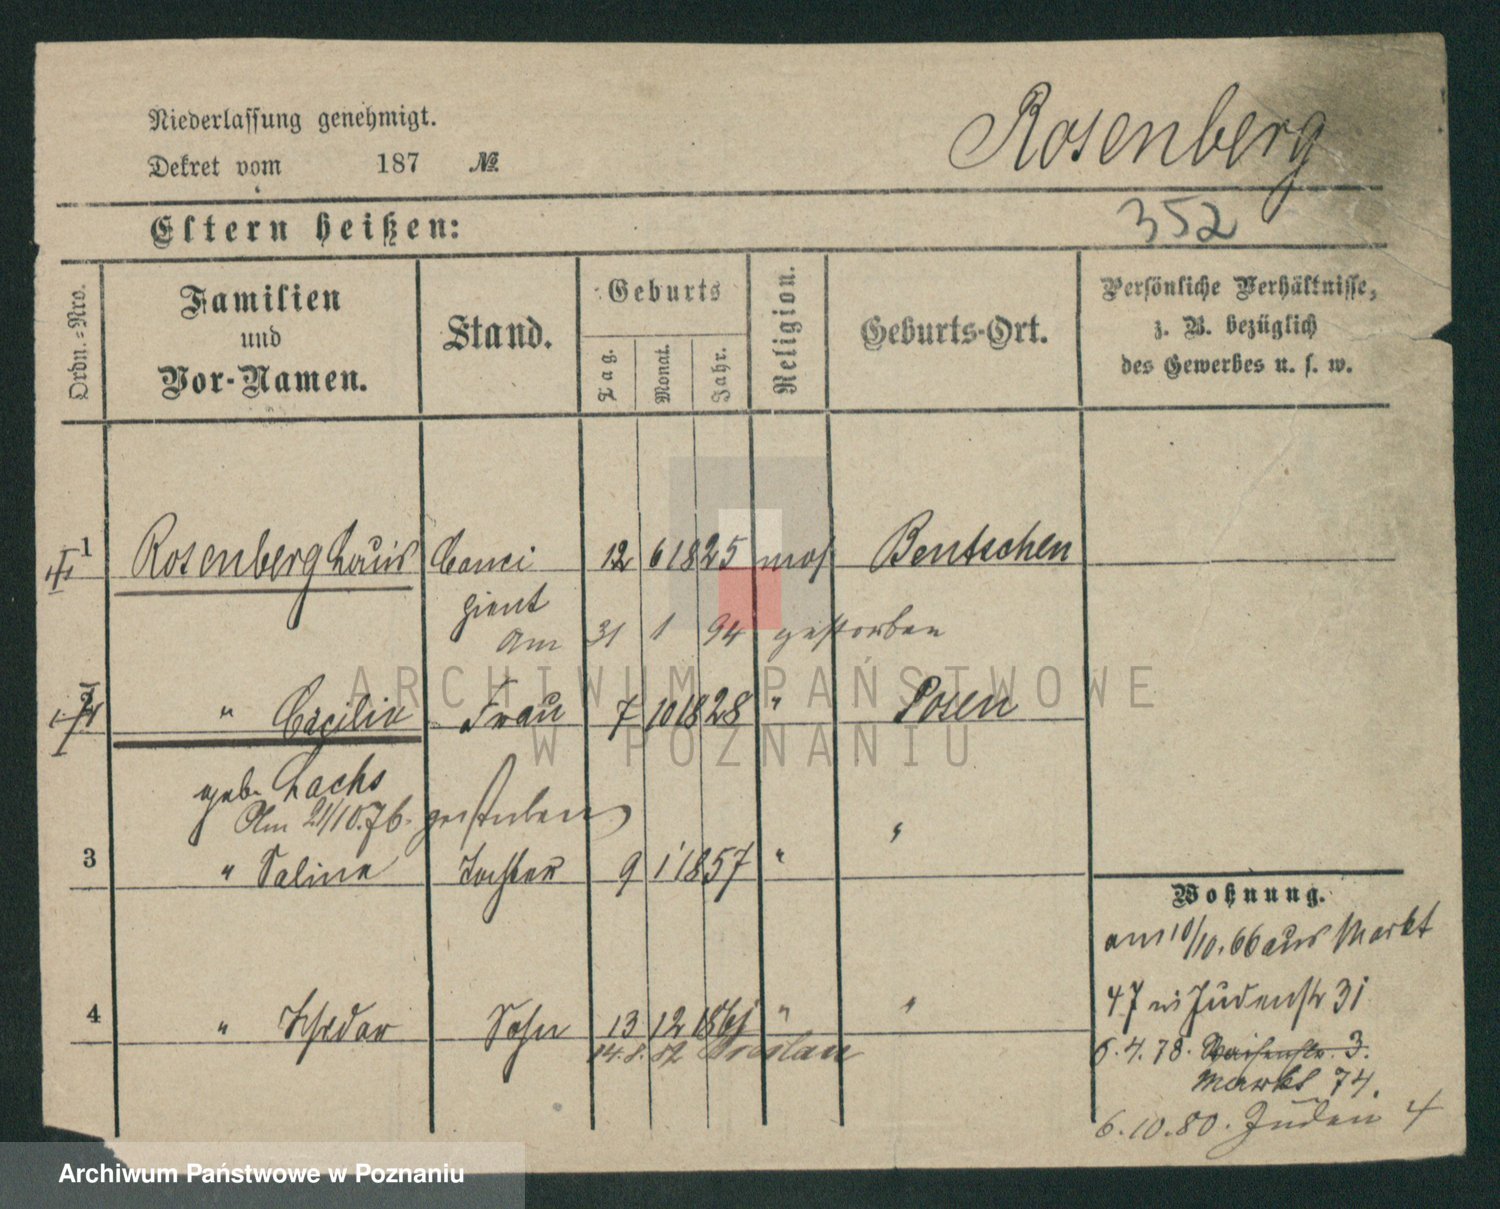 Niederlassung genehmigt.
Dekret vom 187 №
Rosenberg
352
Eltern heißen:
Ordn.-Nro.
Familien
und
Vor-Namen.
Stand.
Geburts
Tag.
Monat.
Jahr.
Religion.
Geburts-Ort.
Persönliche Verhältnisse,
z. B. bezüglich
des Gewerbes u. s. w.
1 Rosenberg Louis 12 6 1825 mos Bentschen
am 31 1 94 gestorben
2 " Cäcilie Frau 7 10 1828 " Posen
geb. Lachs
Am 21/10.76. gestorben
3 " Saline Tochter 9 1 1857 " "
4 " Isidor Sohn 13 12 1861 " "
14. 8. 82 Breslau
Wohnung.
am 10/10. 66 aus Markt
47 Judenstr 31
6.4.78. Waisenstr. 3.
Markt 74.
6.10.80. Juden 4
ARCHIWUM PAŃSTWOWE
W POZNANIU
Archiwum Państwowe w Poznaniu